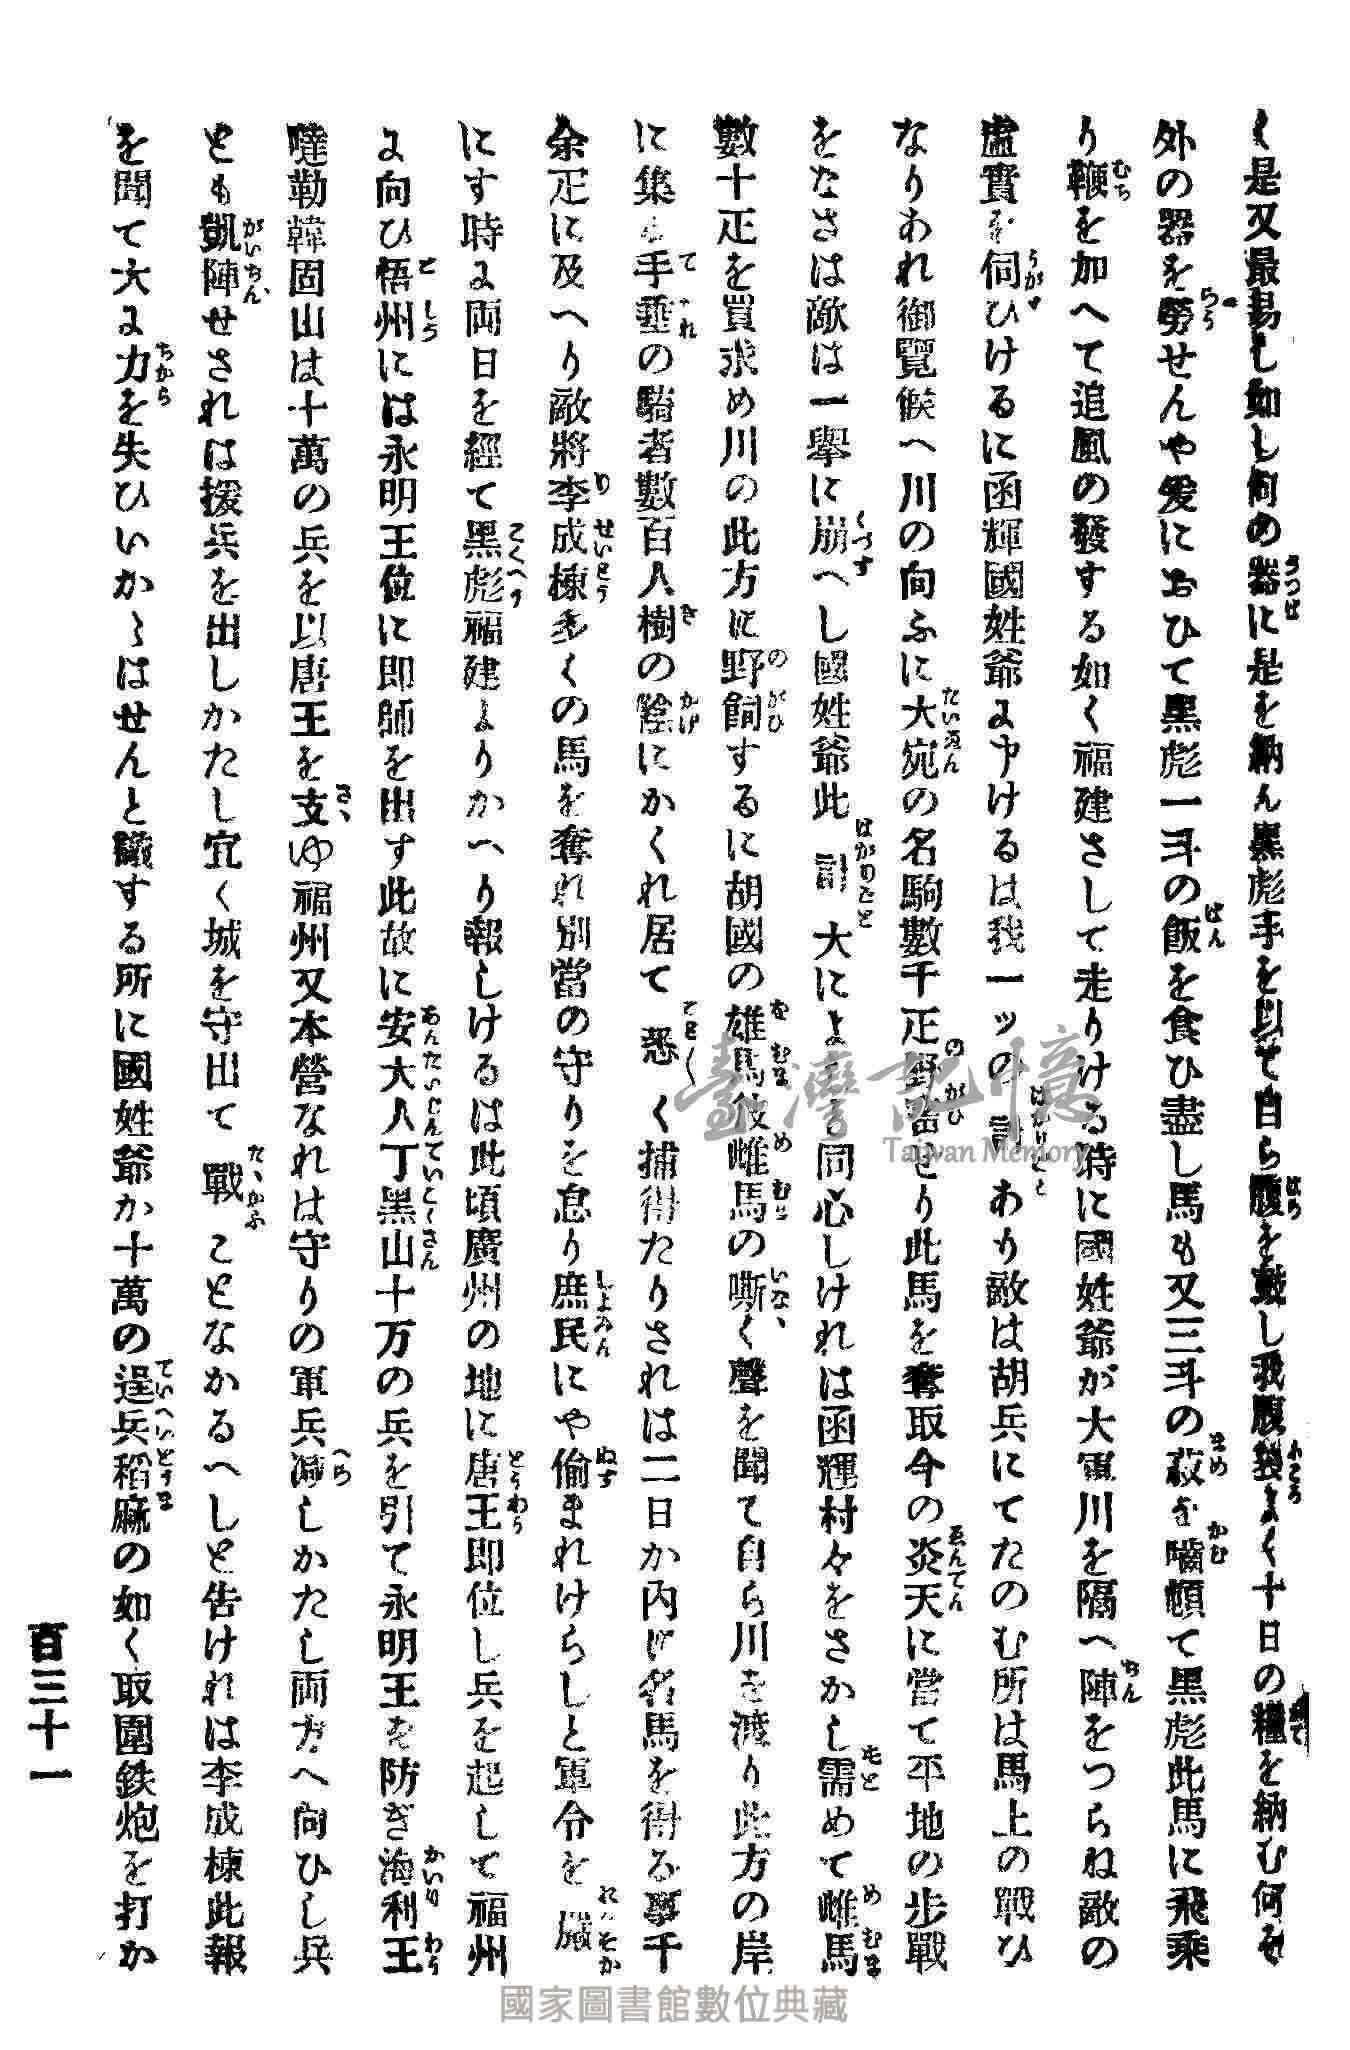 く是又最易し如し何の器に是を納ん黒彪手を以て自ら腹を皷し我腹袋よく十日の糧を納む何そ
外の器を勞せんや爰におひて黒彪一斗の飯を食ひ盡し馬も又三斗の菽を嚙頓て黒彪此馬に飛乘
り鞭を加へて追風の發する如く福建さして走りける時に國姓爺が大軍川を隔へ陣をつらね敵の
虛實を伺ひけるに函輝國姓爺に申けるは我一ツの計あり敵は胡兵にてたのむ所は馬上の戰ひ
なりあれ御覽候へ川の向ふに大宛の名駒數千疋野畄せり此馬を奪取今の炎天に當て平地の步戰
をなさは敵は一擧に崩へし國姓爺此計大によ同心しけれは函輝村々をさかし需めて雌馬
數十疋を買求め川の此方に野飼するに胡國の雄馬彼雌馬の嘶く聲を聞て自ら川を渡り此方の岸
に集る手埀の騎者數百人樹の陰にかくれ居て悉く捕得たりされは二日か内に名馬を得る事千
余疋に及へり敵將李成棟多くの馬を奪れ別當の守りを怠り庶民にや偷まれけらしと軍令を嚴
にす時に両日を經て黑彪福建よりかへり報しけるは此頃廣州の地に唐王即位し兵を起して福州
に向ひ悟州には永明王位に即師を出す此故に安大人丁黑山十万の兵を引て永明王を防ぎ海利王
噠勒韓固山は十萬の兵を以唐王を支ゆ福州又本營なれは守りの軍兵减しかたし両方へ向ひし兵
とも凱陣せされは援兵を出しかたし宜く城を守出て戰ことなかるへしと告けれは李成棟此報
を聞て大に力を失ひいかゝはせんと議する所に國姓爺か十萬の逞兵稻麻の如く取圍鉄炮を打か
百三十一
臺灣記憶
Taiwan Memory
國家圖書館數位典藏